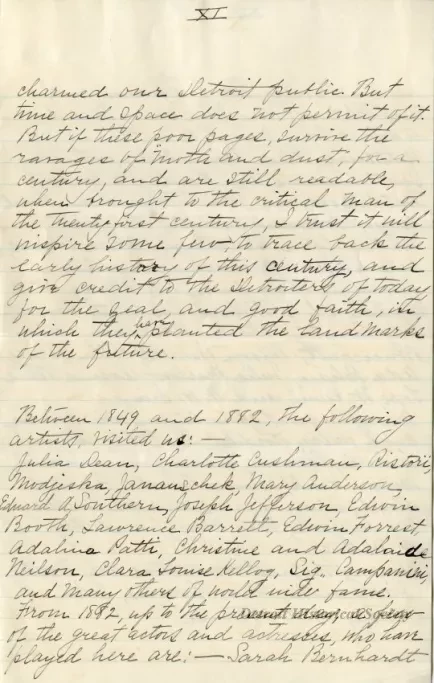 XI
charmed our Detroit public. But
time and space does not permit of it.
But if these poor pages, survive the
ravages of "moth and dust, for a
century, and are still readable,
when brought to the critical man of
the twenty first century, I trust it will
inspire some few to trace back the
early history of this century, and
give credit to the Detroiters of today
for the zeal, and good faith, in
which they have planted the land marks
of the future.
Between 1849 and 1882, the following
artists, visited us: —
Julia Dean, Charlotte Cushman, Ristori,
Modjeska, Janauschek, Mary Anderson,
Eduard A. Southern, Joseph Jefferson, Edwin
Booth, Lawrence Barrett, Edwin Forrest,
Adalina Patti, Christine and Adalaide
Neilson, Clara Louise Kellog, Sig. Campanini,
and many others of world wide fame.
From 1882, up to the present day, a few
of the great actors and actresses, who have
played here are: — Sarah Bernhardt